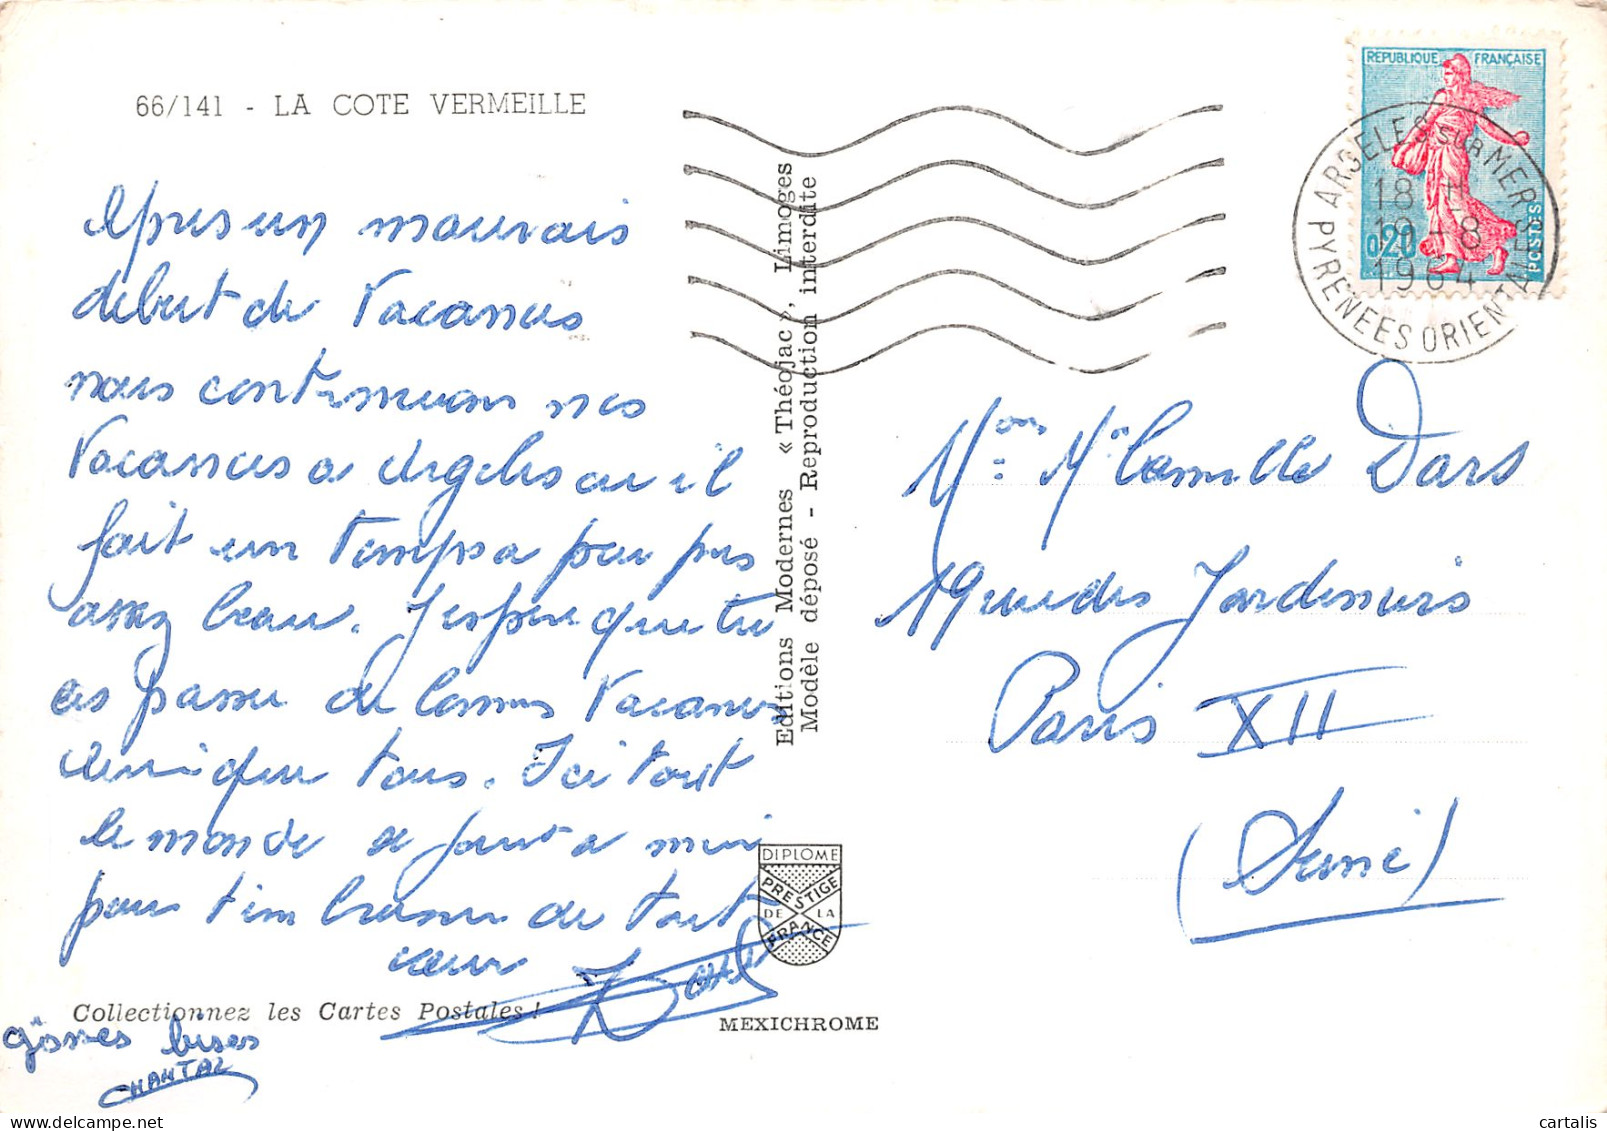 66/141 - LA COTE VERMEILLE
Apres un mauvais
debut de Vacances
nous continuons nos
Vacances a Argeles ou il
fait un temps a peu pres
assez beau. J'espere que tu
as passer de bonnes Vacances
ainsi que tous. Ici tout
le monde se joint a moi
pour t'embrasser de tout
cœur
Collectionnez les Cartes Postales !
grosses bises
CHANTAL
Editions Modernes « Théojac », Limoges
Modèle déposé - Reproduction interdite
DIPLOME
PRESTIGE
DE LA
FRANCE
MEXICHROME
REPUBLIQUE FRANÇAISE
0,20
POSTES
ARGELES SUR MER
18 H
19 - 8
1964
PYRENEES ORIENTALES
Mr Camille Dars
19 rue des Jardiniers
Paris XII
(Seine)
cartalis | Delcampe.net